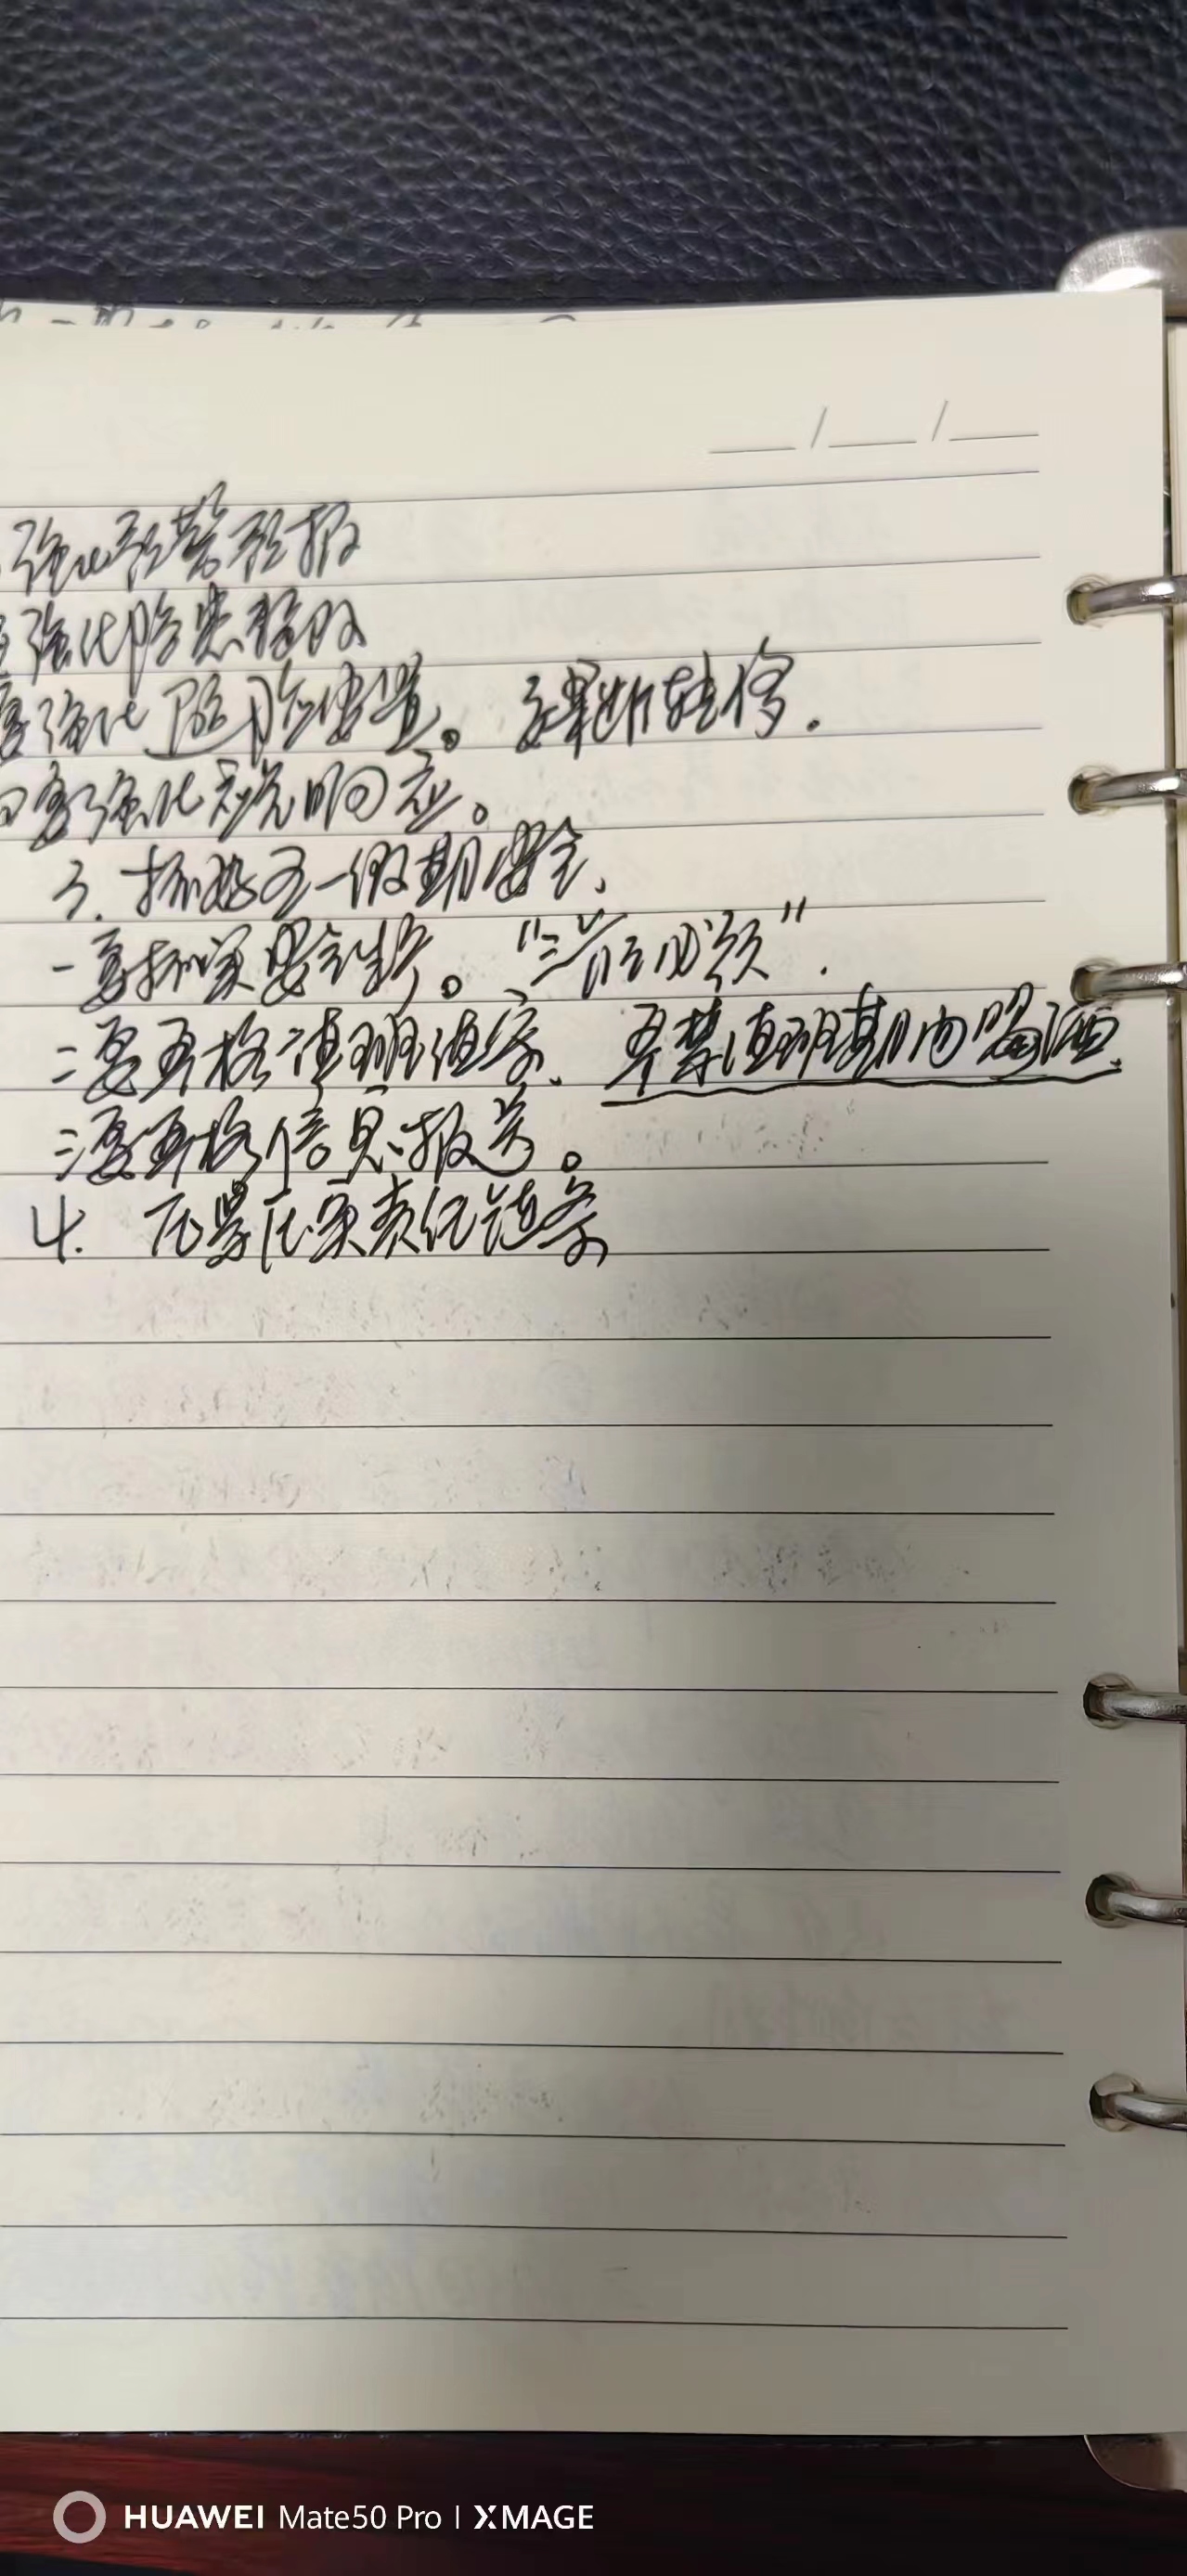 强化预警预报
强化隐患整改
要强化避险安置。要果断转移.
四要强化应急响应。
3. 抓好五一假期安全.
一要抓实安全生产。"三管三必须".
二要严格值班值守、严禁值班期内喝酒.
三要严格信息报送。
4. 压紧压实责任链条
HUAWEI Mate50 Pro | XMAGE